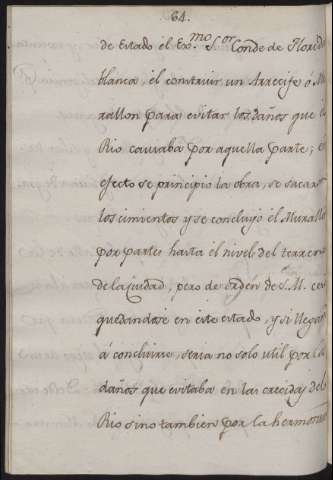 64.
de Estado el Ex.mo S.or Conde de Florida
blanca, el construir un Arrecife ó Mu
rallon para evitar los daños que el
Rio causaba por aquella parte; en
efecto se principió la obra, se sacaron
los cimientos y se concluyó el Murallon
por partes hasta el nivel del terreno
de la ciudad, pero de orden de S. M. cesó
quedandose en este estado, y si llegase
á concluirse, seria no solo util por los
daños que evitaba en las crecidas del
Rio sino tambien por la hermosura